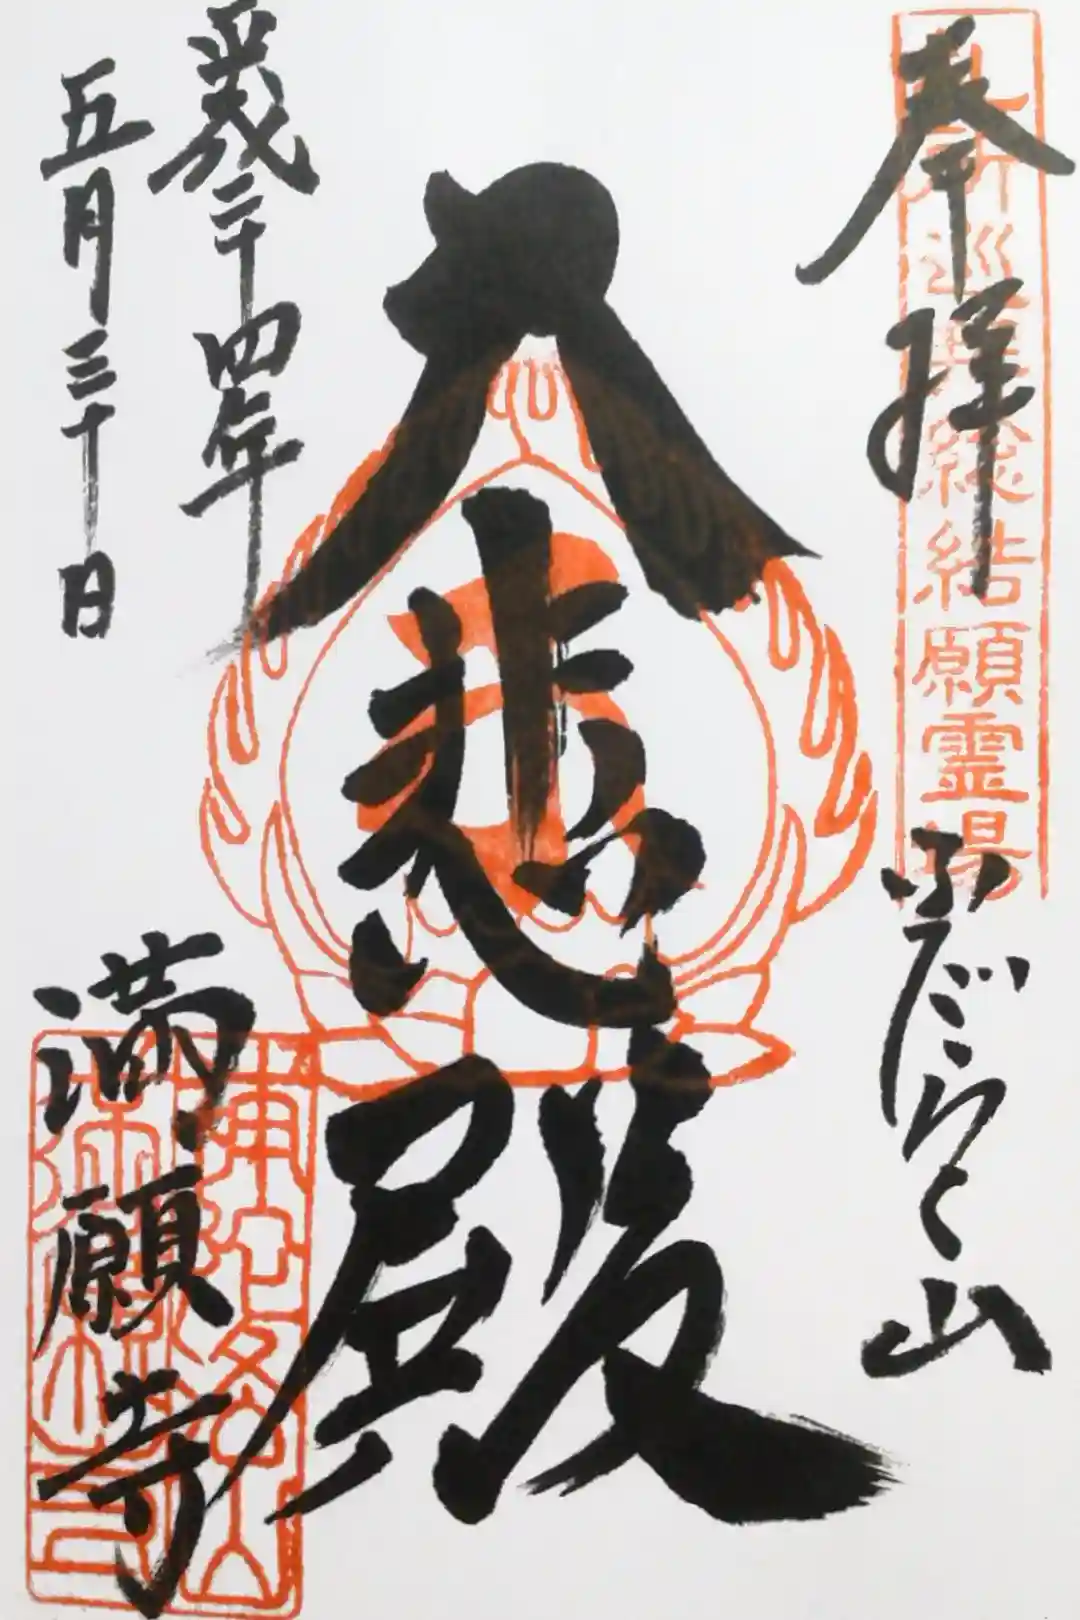 奉拝
札所巡礼総結願霊場
ふだらく山
大悲殿
平成二十四年
五月三十日
満願寺